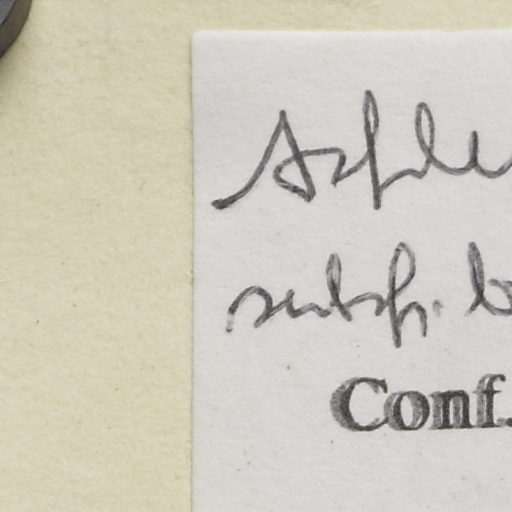 Asple
subsp. b
Conf.